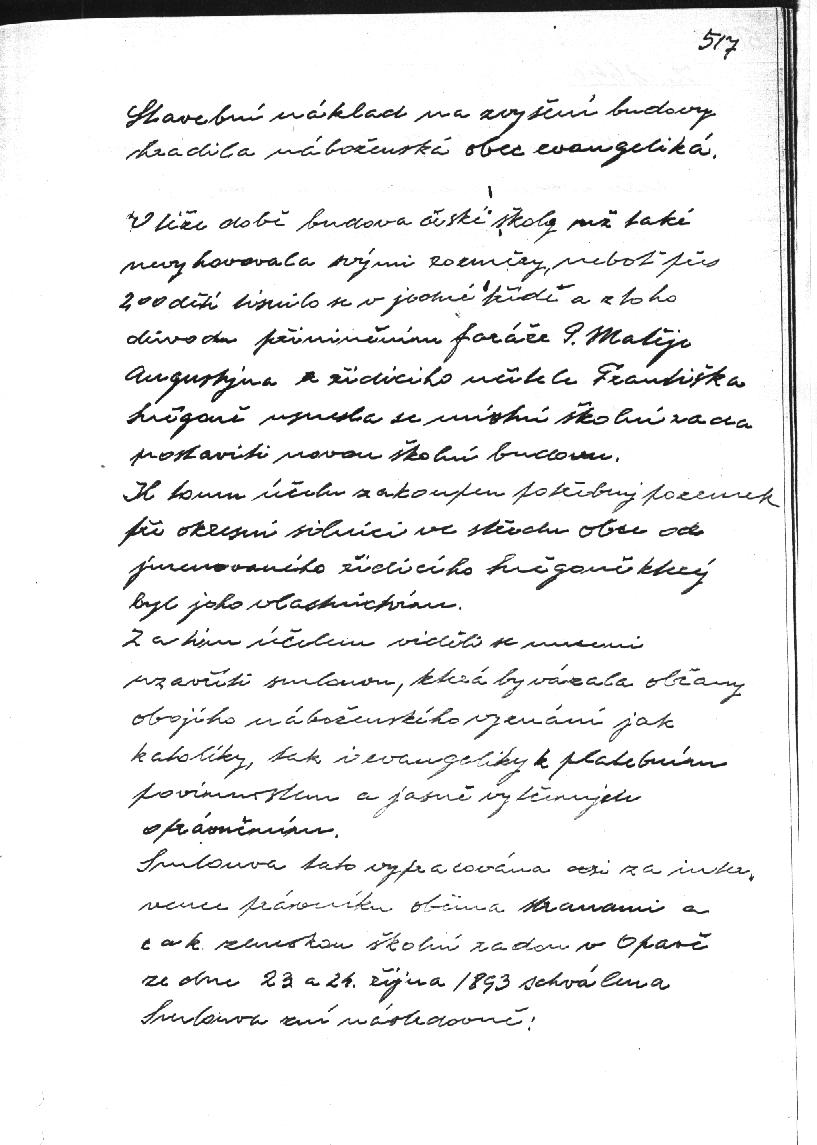 517
Stavební náklad na zvýšení budovy
hradila náboženská obec evangeliká.
V téže době budova české školy už také
nevyhovovala svými rozměry, neboť přes
200 dětí tísnilo se v jedné třídě a z toho
důvodu přičiněním faráře P. Matěje
Augustýna a řídícího učitele Františka
usnesla se místní školní rada
postaviti novou školní budovu.
K tomu účelu zakoupen potřebný pozemek
při okresní silnici ve středu obce od
jmenovaného řídícího který
byl jeho vlastnictvím.
Za tím účelem viděli se nuceni
uzavříti smlouvu, která by vázala občany
obojího náboženského vyznání jak
katolíky, tak i evangelíky k platebním
povinnostem a jasně vytčených
oprávněním.
Smlouva tato vypracována asi za inter,
vence právníků oběma stranami a
c a k. zemskou školní radou v Opavě
ze dne 23 a 24. října 1893 schválena
Smlouva zní následovně: